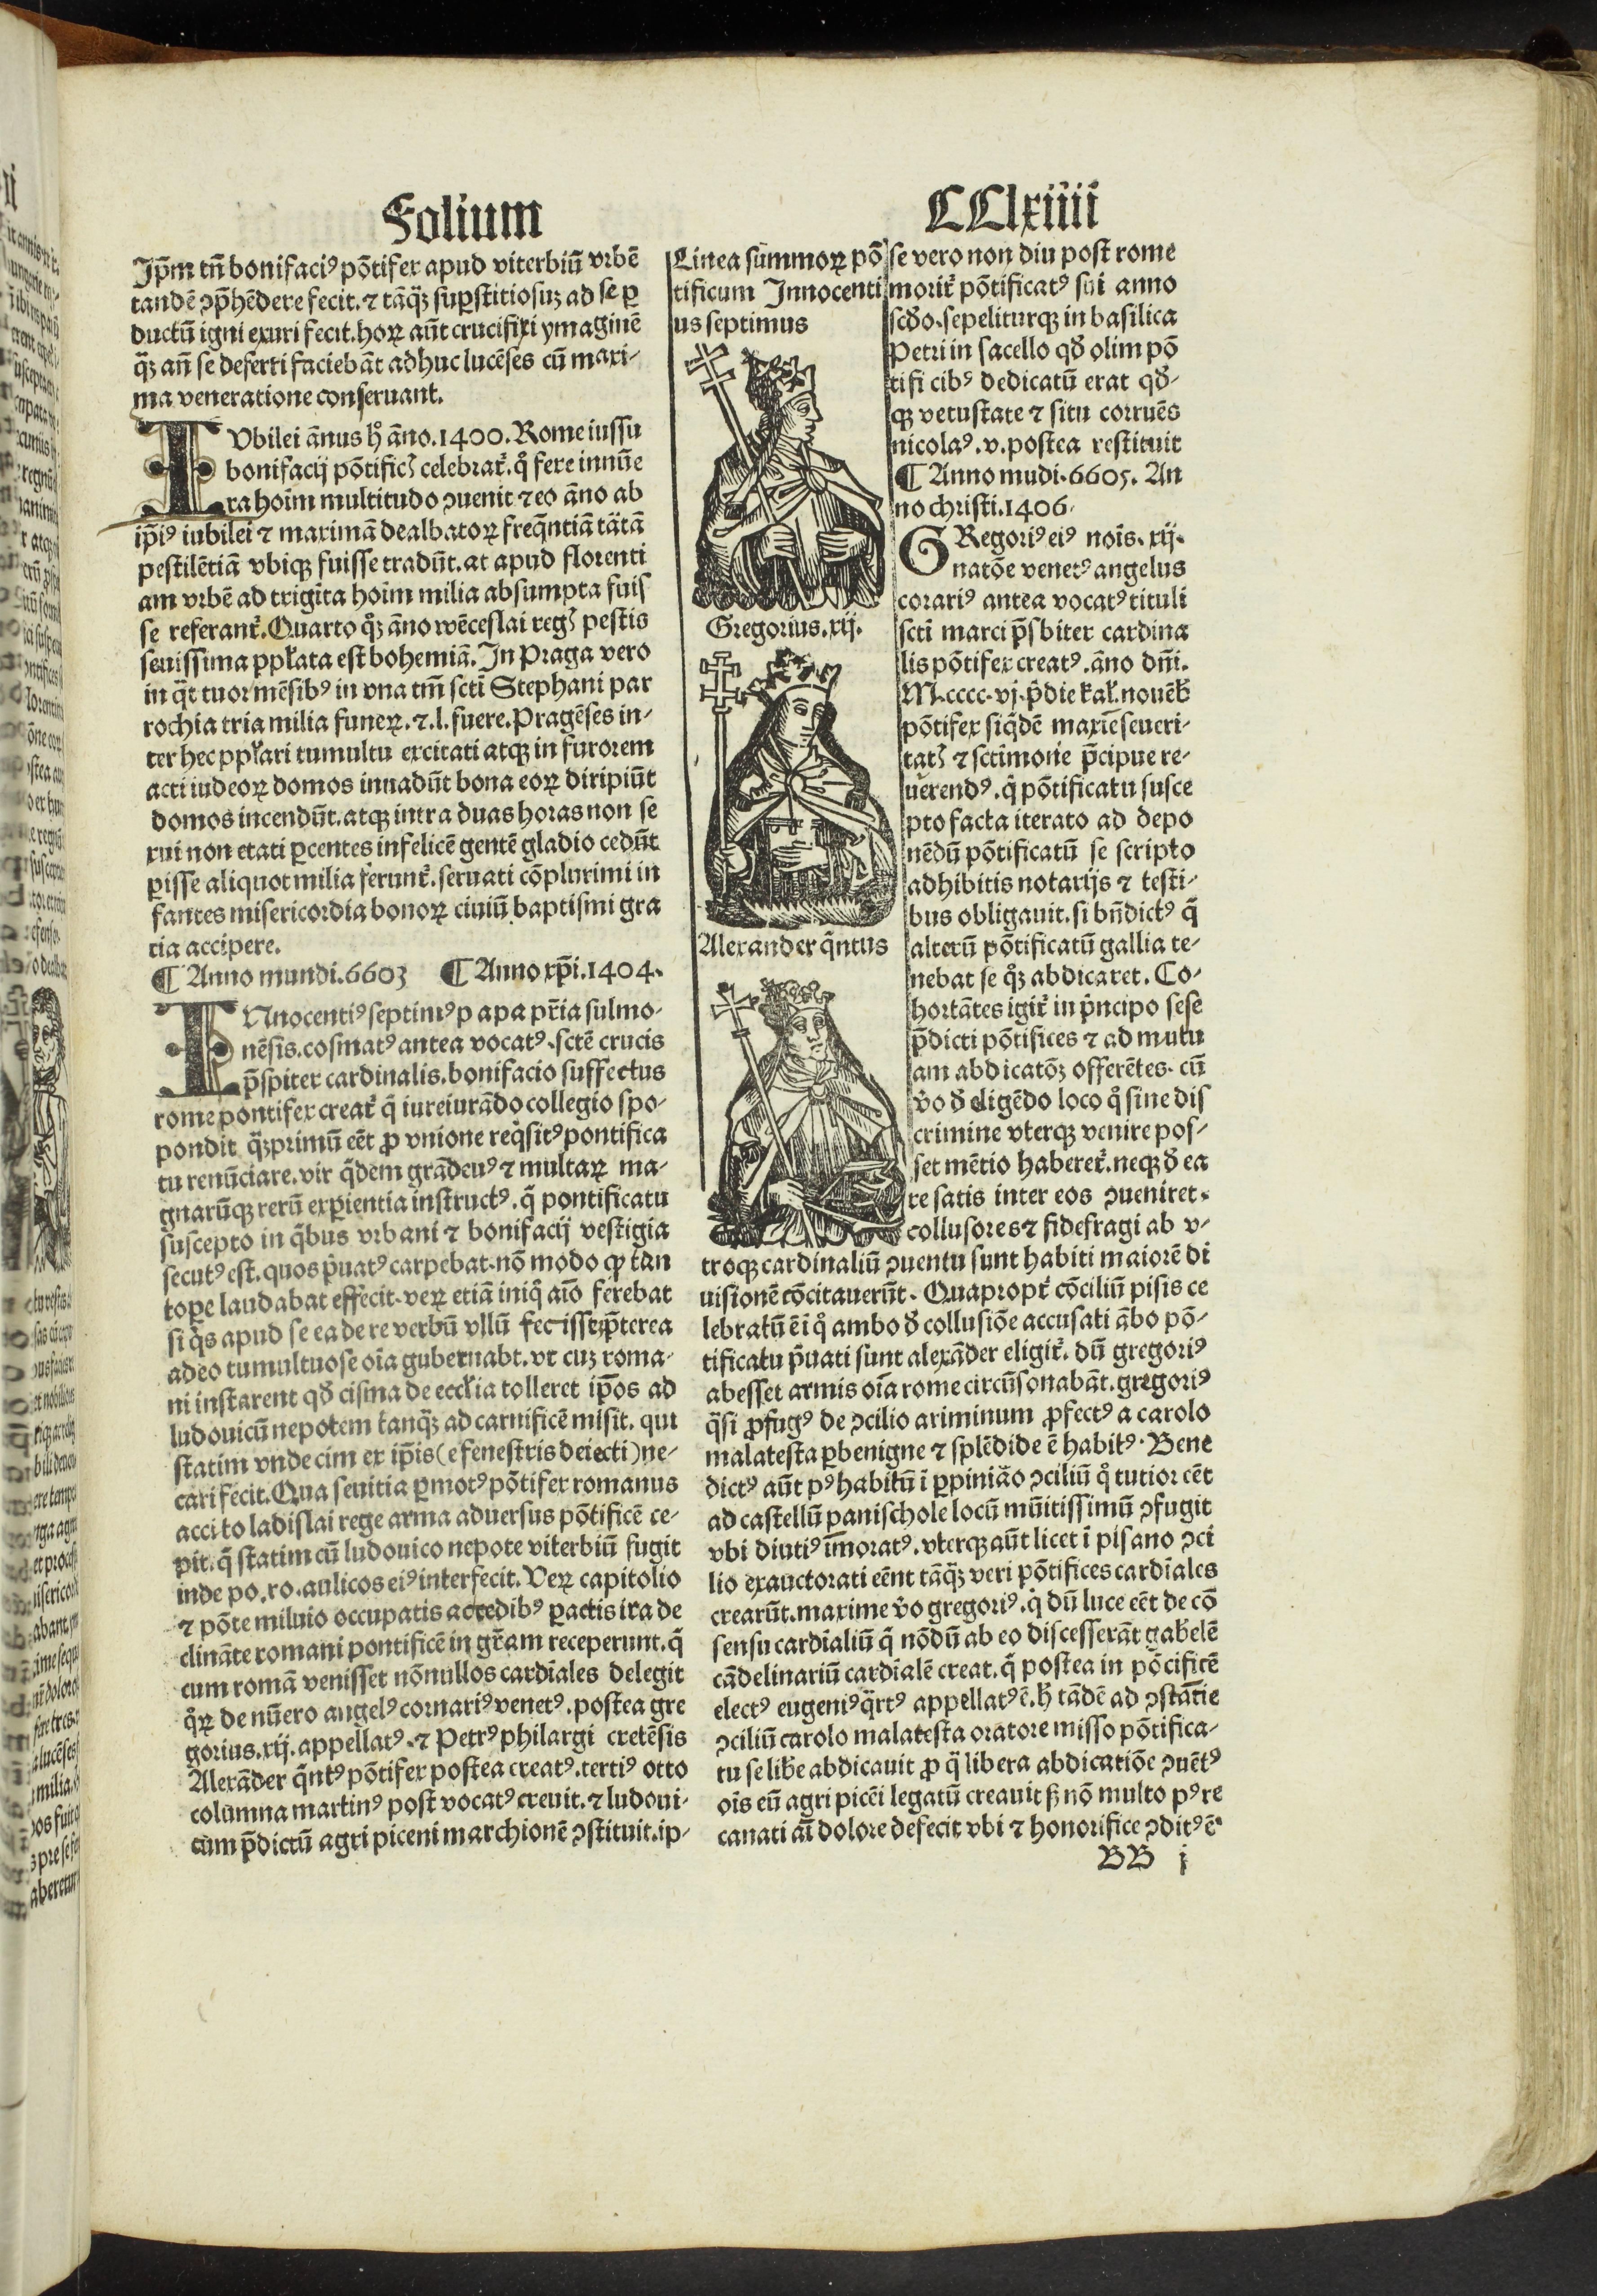 Folium
CClxiiii
Ip̄m tn̄ bonifaciꝰ põtifex apud viterbiũ vrbẽ
tandẽ ↄp̄hẽdere fecit. ⁊ tãqꝫ suꝑstitiosuꝫ ad se ꝑ
ductũ igni exuri fecit. hoꝝ aũt crucifixi ymaginẽ
q̃ꝫ añ se deferri faciebãt adhuc lucẽses cũ maxi-
ma veneratione conseruant.
IVbilei ãnus hͦ ãno.1400. Rome iussu
bonifacij põtificꝭ celebrat̃. qͦ fere innũe
ra hoĩm multitudo ↄuenit ⁊ eo ãno ab
ip̄iꝰ iubilei ⁊ maximã dealbatoꝝ freq̃ntiã tãtã
pestilẽtiã vbiqꝫ fuisse tradũt. at apud florenti
am vrbẽ ad trigĩta hoĩm milia absumpta fuis
se referant̃. Quarto qͦꝫ ãno wẽceslai regꝭ pestis
seuissima ppłata est bohemiã. In Praga vero
in q̃t tuor mẽsibꝰ in vna tm̄ scti Stephani par
rochia tria milia funeꝝ. ⁊.l. fuere. Pragẽses in-
ter hec ppłari tumultu excitati atqꝫ in furorem
acti iudeoꝝ domos inuadũt bona eoꝝ diripiũt
domos incendũt. atqꝫ intra duas horas non se
xui non etati ꝑcentes infelicẽ gentẽ gladio cedũt
ꝑisse aliquot milia ferunt̃. seruati cõplurimi in
fantes misericordia bonoꝝ ciuiũ baptismi gra
tia accipere.
¶ Anno mundi.6603 ¶ Anno xp̄i.1404.
INnocentiꝰ septimꝰ papa pr̃ia sulmo-
nẽsis. cosmatꝰ antea vocatꝰ. sctẽ crucis
p̄spiter cardinalis. bonifacio suffectus
rome pontifex creat̃ q̃ iureiurãdo collegio spo-
pondit q̃ꝫprimũ eẽt ꝓ vnione reqͥsitꝰ pontifica
tu renũciare. vir qͥdem grãdeuꝰ ⁊ multaꝝ ma-
gnarũqꝫ rerũ exꝑientia instructꝰ. q̃ pontificatu
suscepto in qͥbus vrbani ⁊ bonifacij vestigia
secutꝰ est. quos pͥuatꝰ carpebat. nõ modo qꝫ tan
toꝑe laudabat effecit. veꝝ etiã iniqͦ aĩo ferebat
si qͥs apud se ea de re verbũ vllũ fecisset. p̄terea
adeo tumultuose oĩa gubernabt. vt cuꝫ roma-
ni instarent qđ cisma de eccłia tolleret ip̄os ad
ludouicũ nepotem tanqꝫ ad carnificẽ misit. qui
statim vndecim ex ip̄is (e fenestris deiecti) ne-
cari fecit. Qua seuitia ꝑmotꝰ põtifex romanus
accito ladislai rege arma aduersus põtificẽ ce-
pit. q̃ statim cũ ludouico nepote viterbiũ fugit
inde po. ro. aulicos eiꝰ interfecit. Veꝝ capitolio
⁊ põte miluio occupatis ac cedibꝰ ꝑactis ira de
clinãte romani pontificẽ in gr̃am receperunt. q̃
cum romã venisset nõnullos cardĩales delegit
qͦꝝ de nũero angelꝰ cornariꝰ venetꝰ. postea gre
gorius.xij. appellatꝰ. ⁊ Petrꝰ philargi cretẽsis
Alexãder q̃ntꝰ põtifex postea creatꝰ. tertiꝰ otto
columna martinꝰ post vocatꝰ creuit. ⁊ ludoui-
cum p̄dictũ agri piceni marchionẽ ↄstituit. ip-
Linea summoꝝ põ
tificum Innocenti
us septimus
Gregorius.xij.
Alexander q̃ntus
se vero non diu post rome
morit̃ põtificatꝰ sui anno
scđo. sepeliturqꝫ in basilica
Petri in sacello qđ olim põ
tifi cibꝰ dedicatũ erat qđ-
qꝫ vetustate ⁊ situ corruẽs
nicolaꝰ.v. postea restituit
¶ Anno mudi.6605. An
no christi.1406.
GRegoriꝰ eiꝰ noĩs. xij.
natõe venetꝰ angelus
corariꝰ antea vocatꝰ tituli
scti marci p̄sbiter cardina
lis põtifex creatꝰ. ãno dñi.
M.cccc.vj. p̄die kał. nouẽb̃
põtifex siqͥdẽ maxĩe seueri-
tatꝭ ⁊ sctimonie p̄cipue re-
uerendꝰ. q̃ põtificatu susce
pto facta iterato ad depo
nẽdũ põtificatũ se scripto
adhibitis notarijs ⁊ testi-
bus obligauit. si bñdictꝰ q̃
alterũ põtificatũ gallia te-
nebat se qͦꝫ abdicaret. Co-
hortãtes igit̃ in pͥncipo sese
p̄dicti põtifices ⁊ ad mutu
am abdicatõꝫ offerẽtes. cũ
ṽo đ eligẽdo loco qͦ sine dis
crimine vterqꝫ venire pos-
set mẽtio haberet̃. neqꝫ đ ea
re satis inter eos ↄueniret.
collusores ⁊ fidefragi ab v-
troqꝫ cardinaliũ ↄuentu sunt habiti maiorẽ di
uisionẽ cõcitauerũt. Quapropt̃ cõciliũ pisis ce
lebratũ ẽ ĩ qͦ ambo đ collusiõe accusati ãbo põ-
tificatu pͥuati sunt alexãder eligit̃. dũ gregoriꝰ
abesset armis oĩa rome circũsonabãt. gregoriꝰ
q̃si ꝓfugꝰ de ↄcilio ariminum ꝓfectꝰ a carolo
malatesta ꝑbenigne ⁊ splẽdide ẽ habitꝰ. Bene
dictꝰ aũt pꝰ habitũ ĩ ꝑpinião ↄciliũ qͦ tutior eẽt
ad castellũ panischole locũ mũitissimũ ↄfugit
vbi diutiꝰ ĩmoratꝰ. vterqꝫ aũt licet ĩ pisano ↄci
lio exauctorati eẽnt tãqꝫ veri põtifices cardĩales
crearũt. maxime ṽo gregoriꝰ. qͥ dũ luce eẽt de cõ
sensu cardĩaliũ q̃ nõdũ ab eo discesserãt gabrielẽ
cãdelinariũ cardĩalẽ creat. q̃ postea in põcificẽ
electꝰ eugeniꝰ q̃rtꝰ appellatꝰ ẽ. hͥ tãdẽ ad ↄstãtie
ↄciliũ carolo malatesta oratore misso põtifica-
tu se libe abdicauit ꝓ q̃ libera abdicatiõe ↄuẽtꝰ
oĩs eũ agri picẽi legatũ creauit ß nõ multo pꝰ re
canati aĩ dolore defecit vbi ⁊ honorifice ↄditꝰ ẽ.
BB i